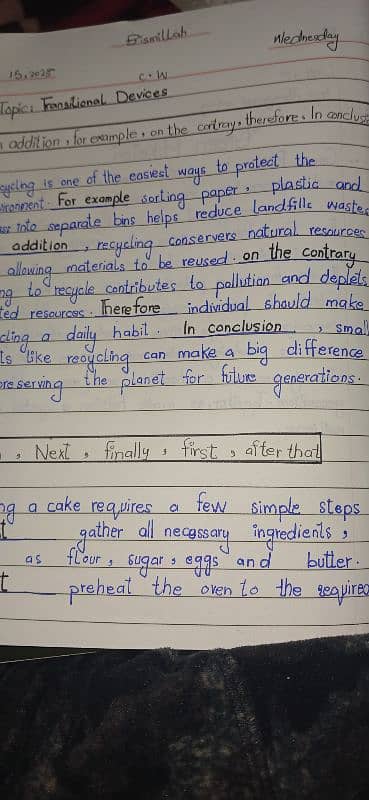 Bismillah
Wednesday
15, 2025
C.W
Topic: Transitional Devices
addition, for example, on the contray, therefore, In conclus
ecycling is one of the easiest ways to protect the
vironment. For example sorting paper, plastic and
into separate bins helps reduce landfills wastes
addition, recycling conservers natural resources
allowing materials to be reused. on the contrary
ng to recycle contributes to pollution and deplets
ted resources. Therefore individual should make
cling a daily habit. In conclusion, small
ts like recycling can make a big difference
preserving the planet for future generations.
, Next, finally, first, after that
ng a cake requires a few simple steps
t gather all necessary ingredients,
as flour, sugar, eggs and butter.
t preheat the oven to the required